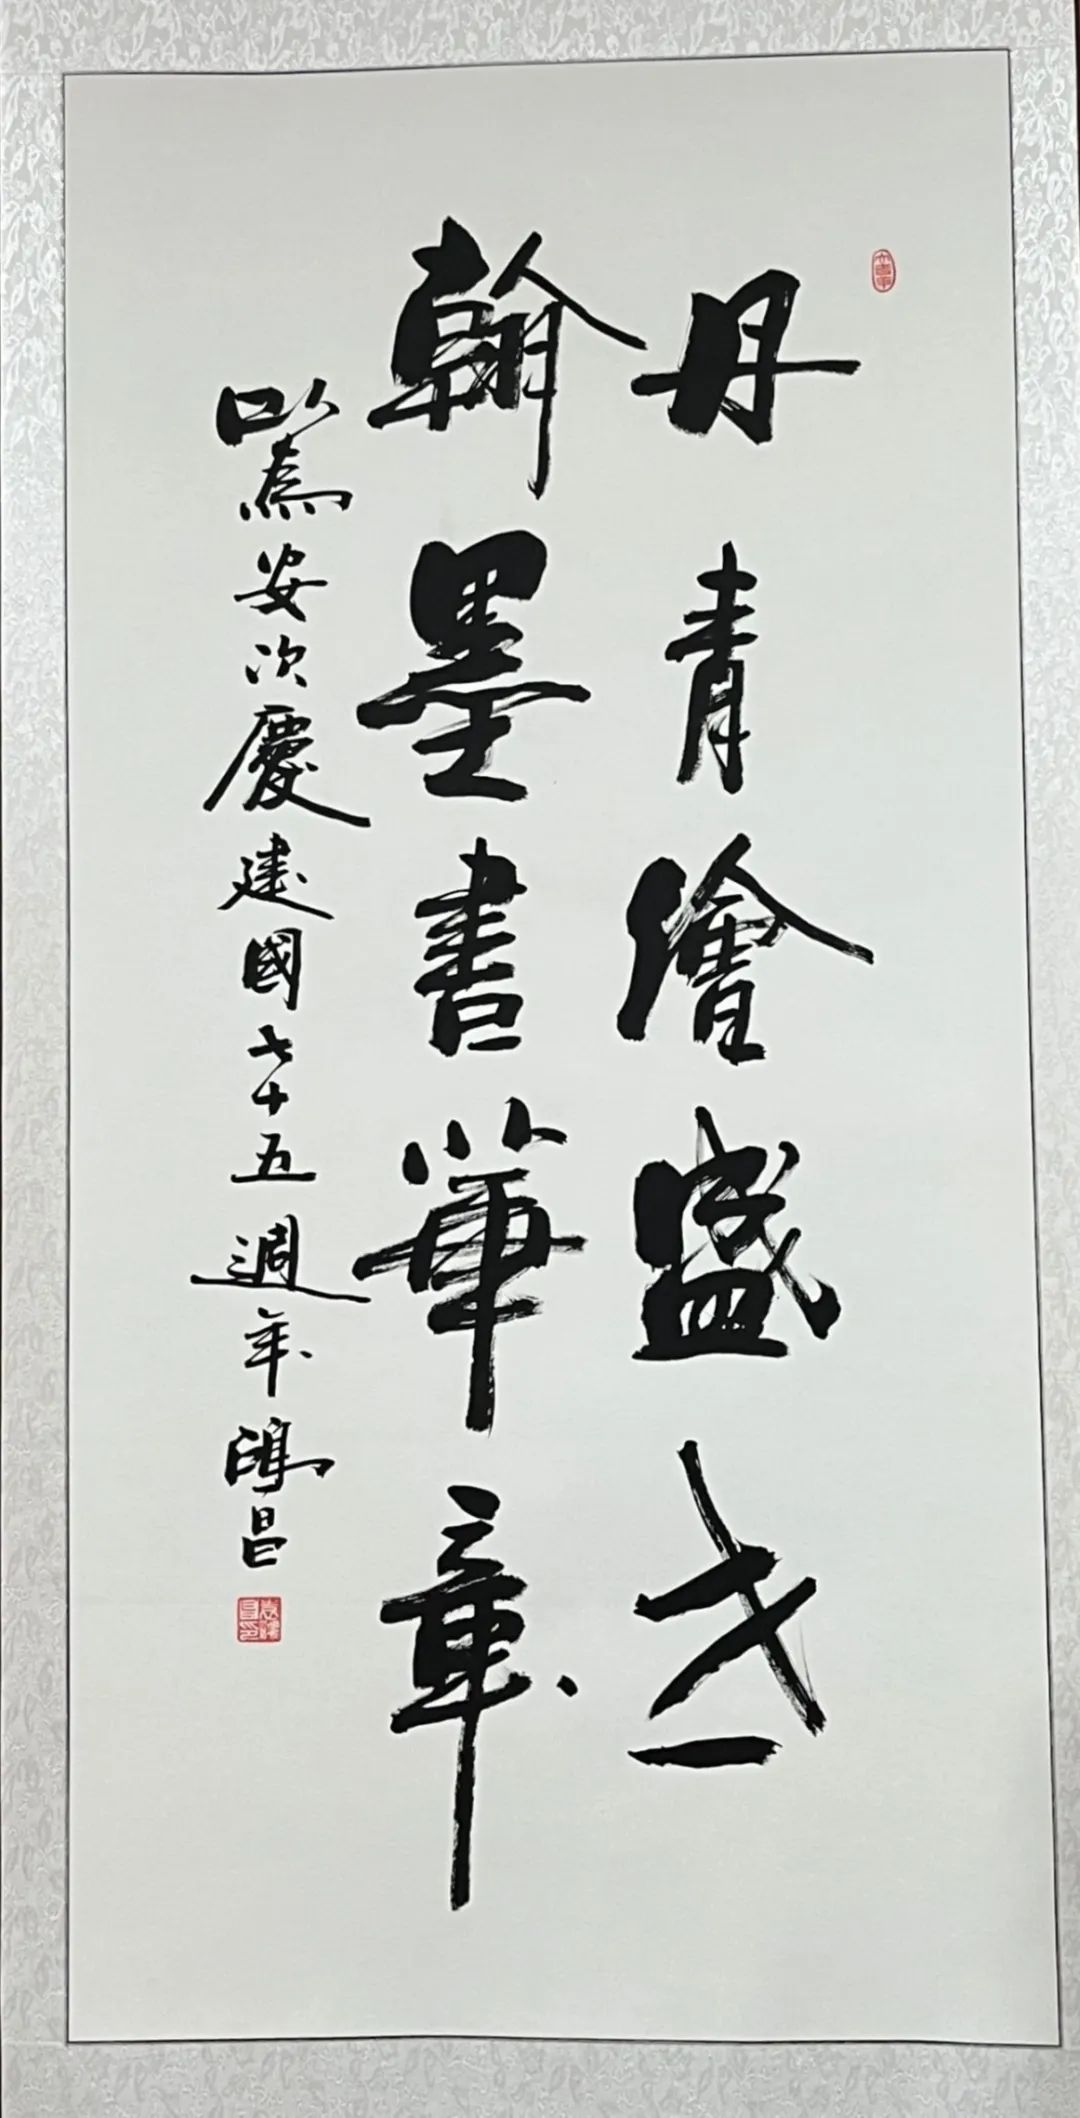 丹青繪盛世
翰墨書華章
以為安次慶建國七十五週年鴻昌